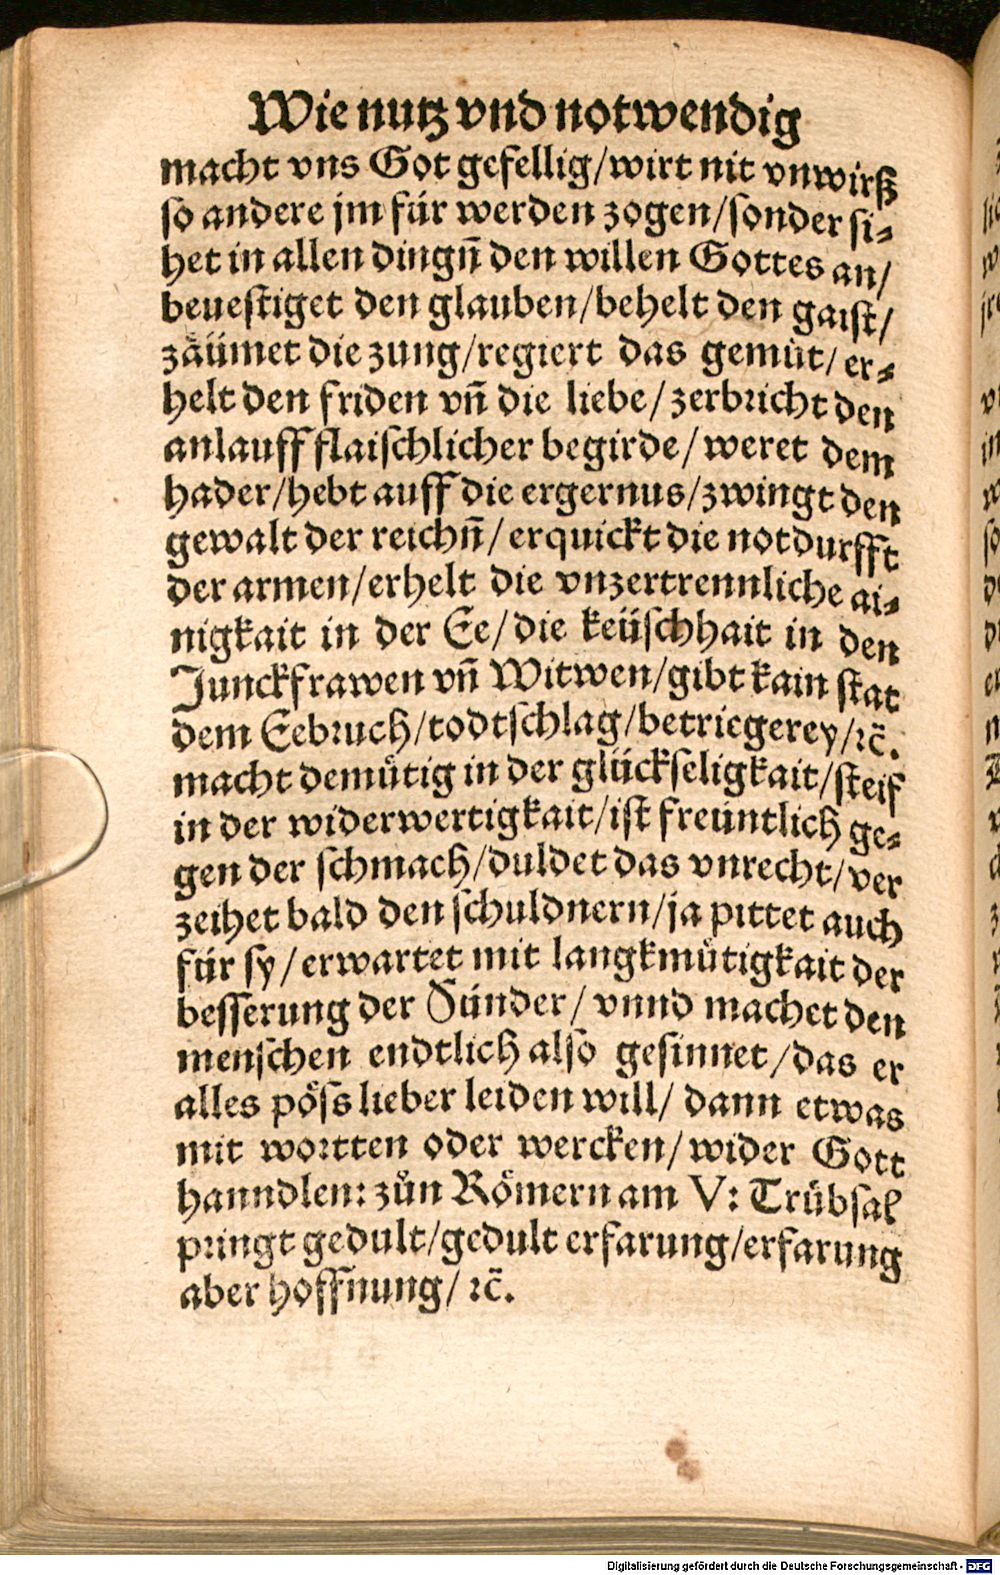 Wie nutz vnd notwendig
macht vns Got gefellig/wirt nit vnwirß
so andere jm für werden zogen/sonder si⸗
het in allen dingn̄ den willen Gottes an/
beuestiget den glauben/behelt den gaist/
zäümet die zung/regiert das gemüt/er⸗
helt den friden vn̄ die liebe/zerbricht den
anlauff flaischlicher begirde/weret dem
hader/hebt auff die ergernus/zwingt den
gewalt der reichn̄/erquickt die notdurfft
der armen/erhelt die vnzertrennliche ai⸗
nigkait in der Ee/die keüschhait in den
Junckfrawen vn̄ Witwen/gibt kain stat
dem Eebruch/todtschlag/betriegerey/ꝛc̄.
macht demütig in der glückseligkait/steif
in der widerwertigkait/ist freüntlich ge⸗
gen der schmach/duldet das vnrecht/ver
zeihet bald den schuldnern/ja pittet auch
für sy/erwartet mit langkmütigkait der
besserung der Sünder/vnnd machet den
menschen endtlich also gesinnet/das er
alles pöss lieber leiden will/dann etwas
mit wortten oder wercken/wider Gott
hanndlen: zůn Römern am V: Trübsal
pringt gedult/gedult erfarung/erfarung
aber hoffnung/ꝛc̄.
Digitalisierung gefördert durch die Deutsche Forschungsgemeinschaft - DFG